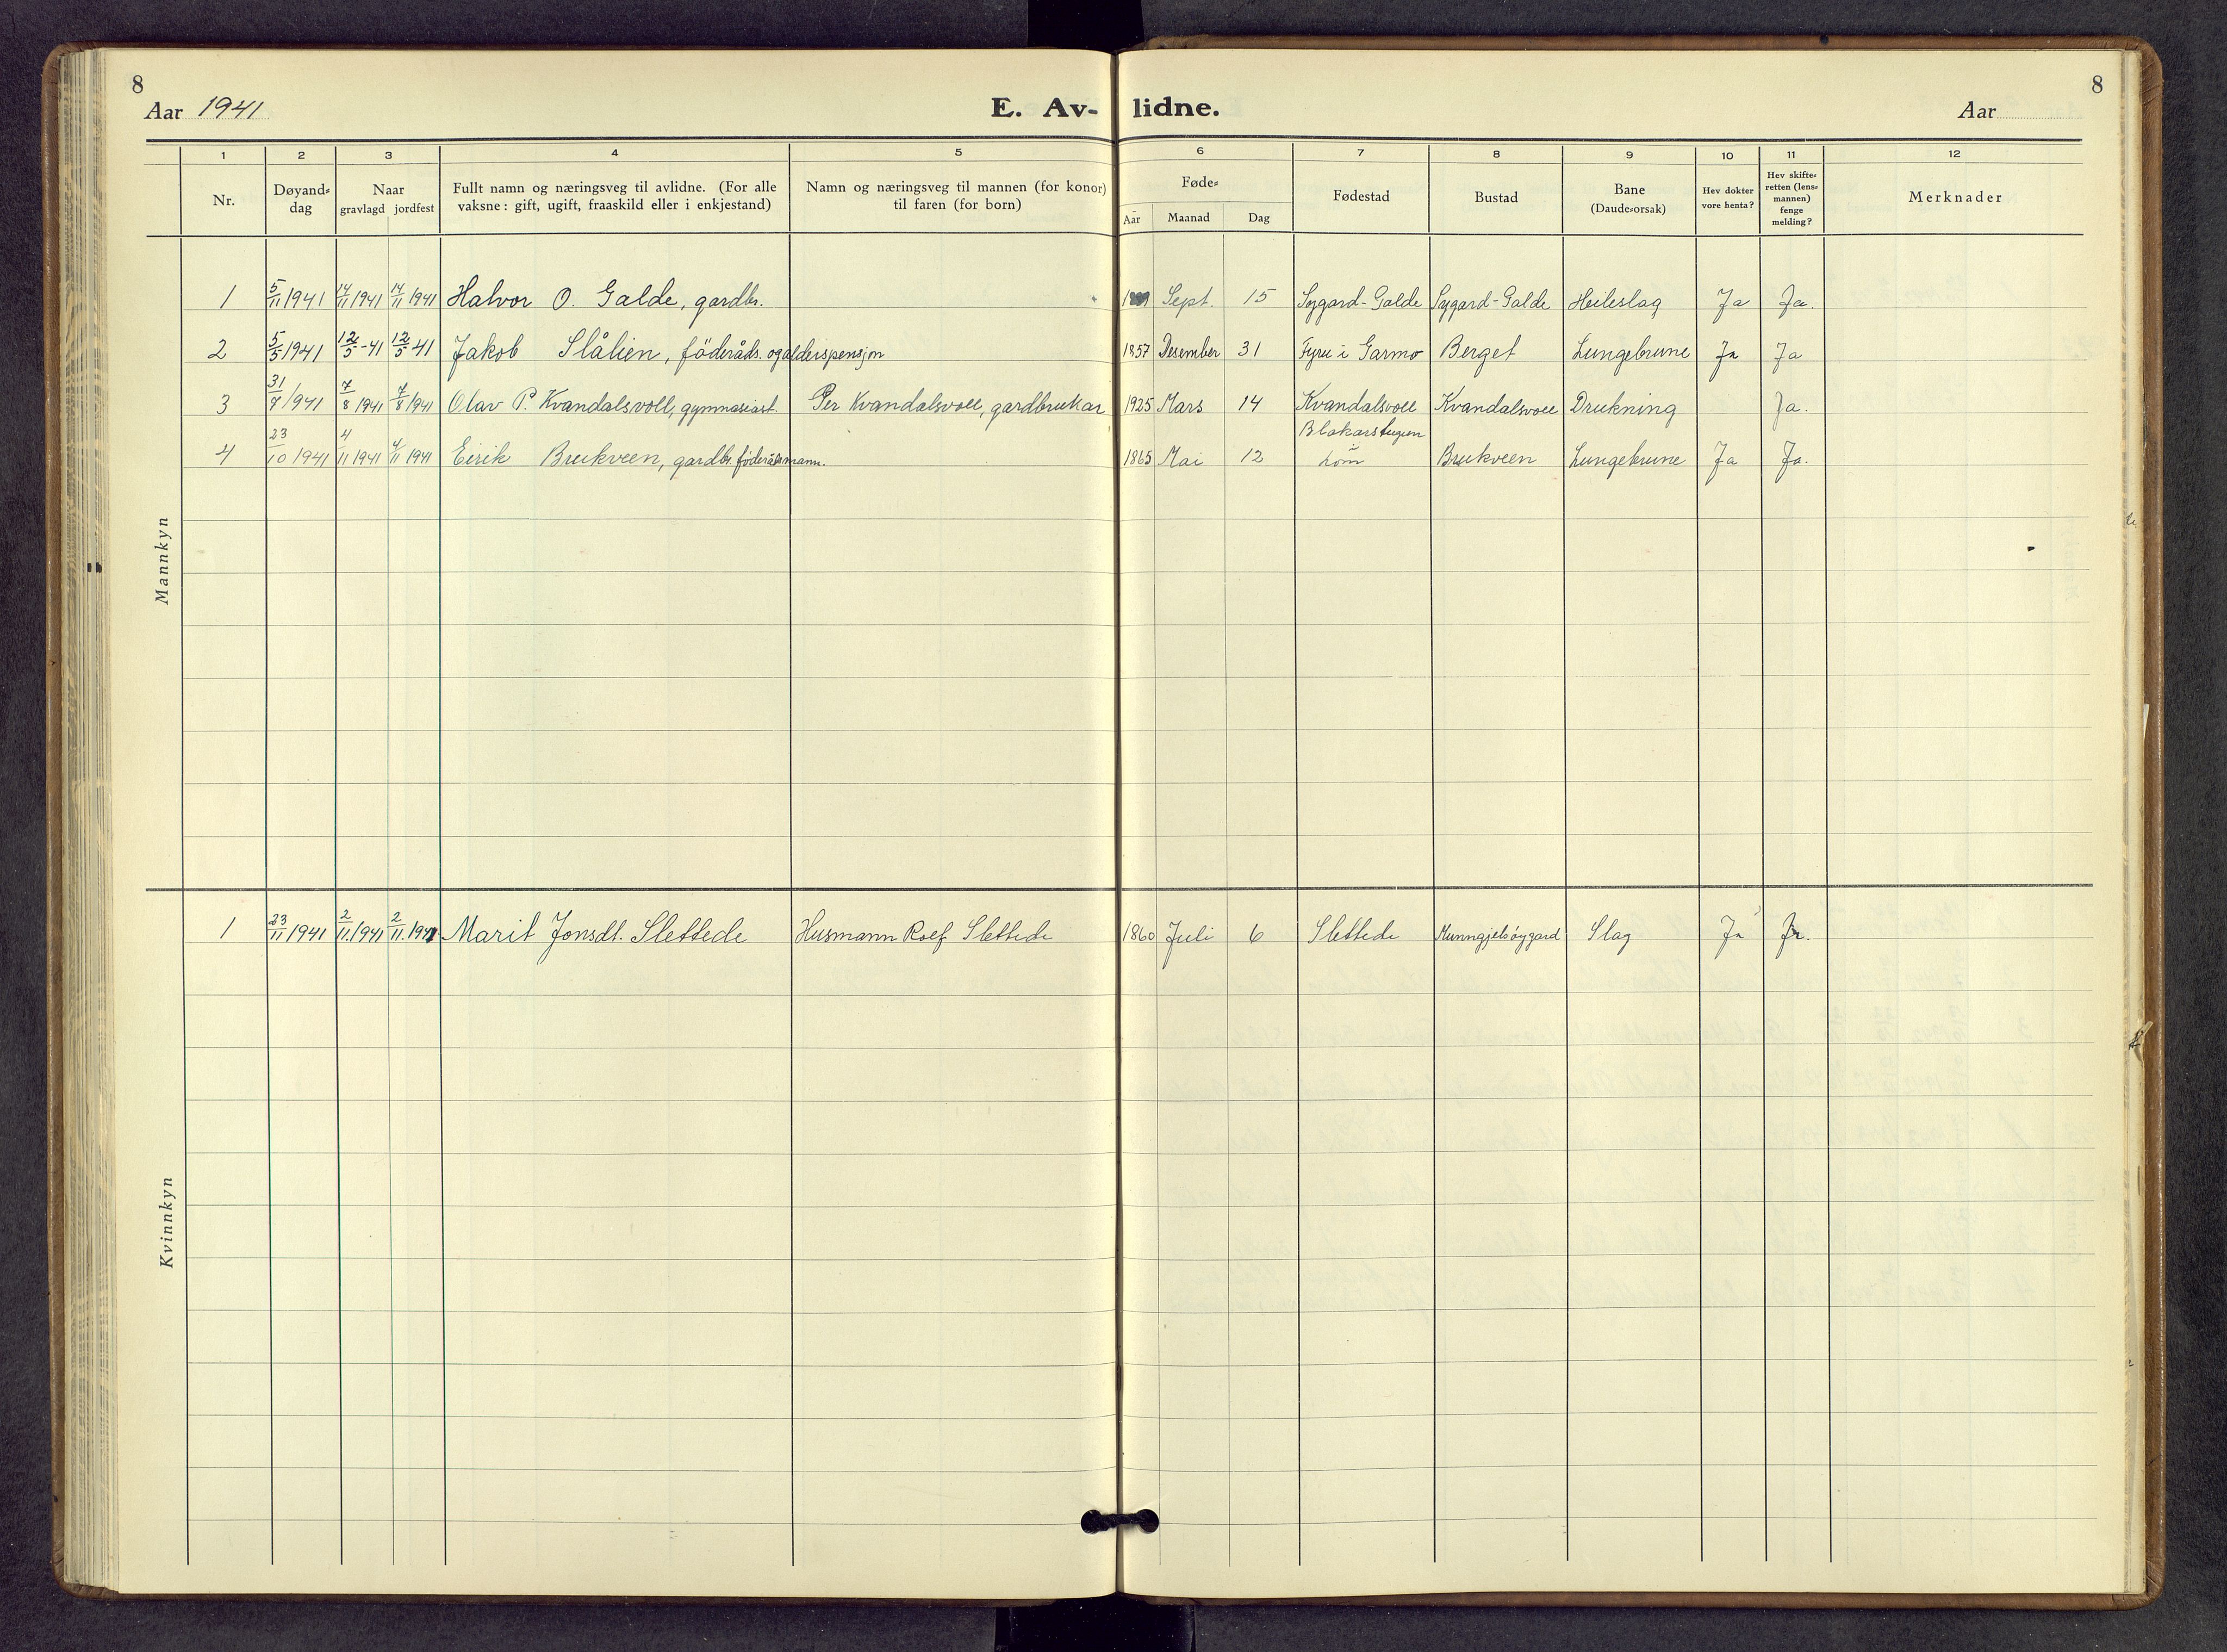 8
8
Aar 1941
E. Av- lidne.
Aar
1 2 3 4 5 6 7 8 9 10 11 12
Nr.
Døyand-
dag
Naar
gravlagd jordfest
Fullt namn og næringsveg til avlidne. (For alle
vaksne: gift, ugift, fraaskild eller i enkjestand)
Namn og næringsveg til mannen (for konor)
til faren (for born)
Føde-
Aar Maanad Dag
Fødestad
Bustad
Bane
(Daude-orsak)
Hev dokter
vore henta?
Hev skifte-
retten (lens-
mannen)
fenge
melding?
Merknader
Mannkyn
1 5/11 1941 14/11 1941 14/11 1941 Halvor O. Galde, gardbr. Sept. 15 Sygard-Galde Sygard-Galde Heileslag Ja Ja.
2 5/5 1941 12/5-41 12/5 41 Jakob Slålien, föderåds. og alderspensjon 1857 Desember 31 Fyru i Garmo Berget Lungebrune Ja Ja
3 31/7 1941 7/8 1941 7/8 1941 Olav P. Kvandalsvoll, gymnasiast. Per Kvandalsvoll, gardbrukar 1925 Mars 14 Kvandalsvoll Kvandalsvoll Drukning Ja.
4 23/10 1941 4/11 1941 4/11 1941 Eirik Brukveen, gardbr. föderådsmann. 1865 Mai 12 Blakarstugun
Lom Brukveen Lungebrune Ja Ja.
Kvinnkyn
1 23/11 1941 2/11. 1941 2/11. 1941 Marit Jonsdt. Slettede Husmann Rolf Slettede 1860 Juli 6 Slettede Munngjelsöygard Slag Ja Ja.